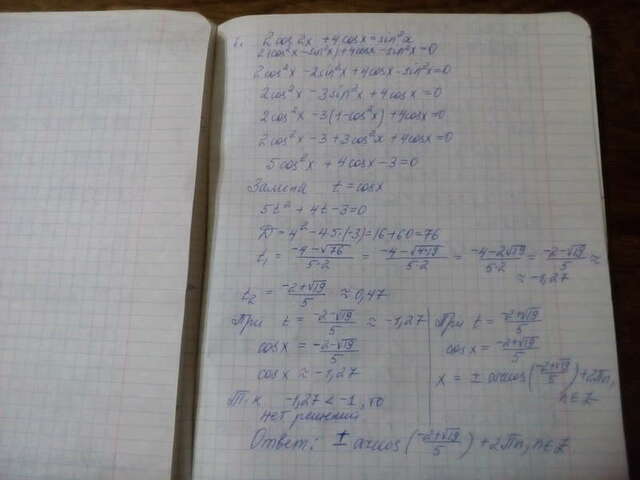 1. 2cos2x + 4cosx = sin²x
2(cos²x - sin²x) + 4cosx - sin²x = 0
2cos²x - 2sin²x + 4cosx - sin²x = 0
2cos²x - 3sin²x + 4cosx = 0
2cos²x - 3(1-cos²x) + 4cosx = 0
2cos²x - 3 + 3cos²x + 4cosx = 0
5cos²x + 4cosx - 3 = 0
Замена t = cosx
5t² + 4t - 3 = 0
D = 4² - 4·5·(-3) = 16 + 60 = 76
t₁ = (-4-√76)/(5·2) = (-4-√(4·19))/(5·2) = (-4-2√19)/(5·2) = (-2-√19)/5 ≈
≈ -1,27
t₂ = (-2+√19)/5 ≈ 0,47
При t = (-2-√19)/5 ≈ -1,27
cosx = (-2-√19)/5
cosx ≈ -1,27
Т.к -1,27 < -1, то
нет решений
При t = (-2+√19)/5
cosx = (-2+√19)/5
x = ± arccos((-2+√19)/5) + 2πn,
n∈Z
Ответ: ± arccos((-2+√19)/5) + 2πn, n∈Z